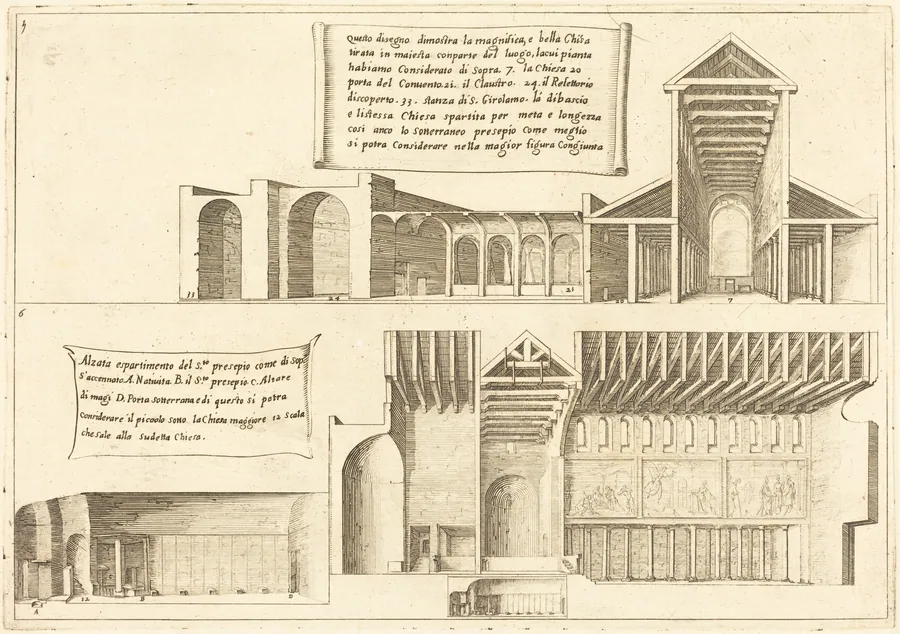 5
Questo disegno dimostra la magnifica, e bella Chisa
tirata in maiesta conparte del luogo, lacui pianta
habiamo Considerato di Sopra. 7. la Chiesa 20
porta del Conuento. 21. il Claustro. 24. il Refettorio
discoperto. 33. stanza di S. Girolamo. la dibascio
e listessa Chiesa spartita per meta e longezza
cosi anco lo Soterraneo presepio Come meglio
si potra Considerare nella magior figura Congiunta
33
24
21
20
7
6
Alzata espartimento del S.to presepio come di Sop.
S'accennato. A. Natiuita. B. il S.to presepio. C. Altare
di magi D. Porta Soterranea e di questo si potra
considerare il piccolo sotto la Chiesa maggiore 12 Scala
che sale alla sudetta Chiesa.
A
12
B
D